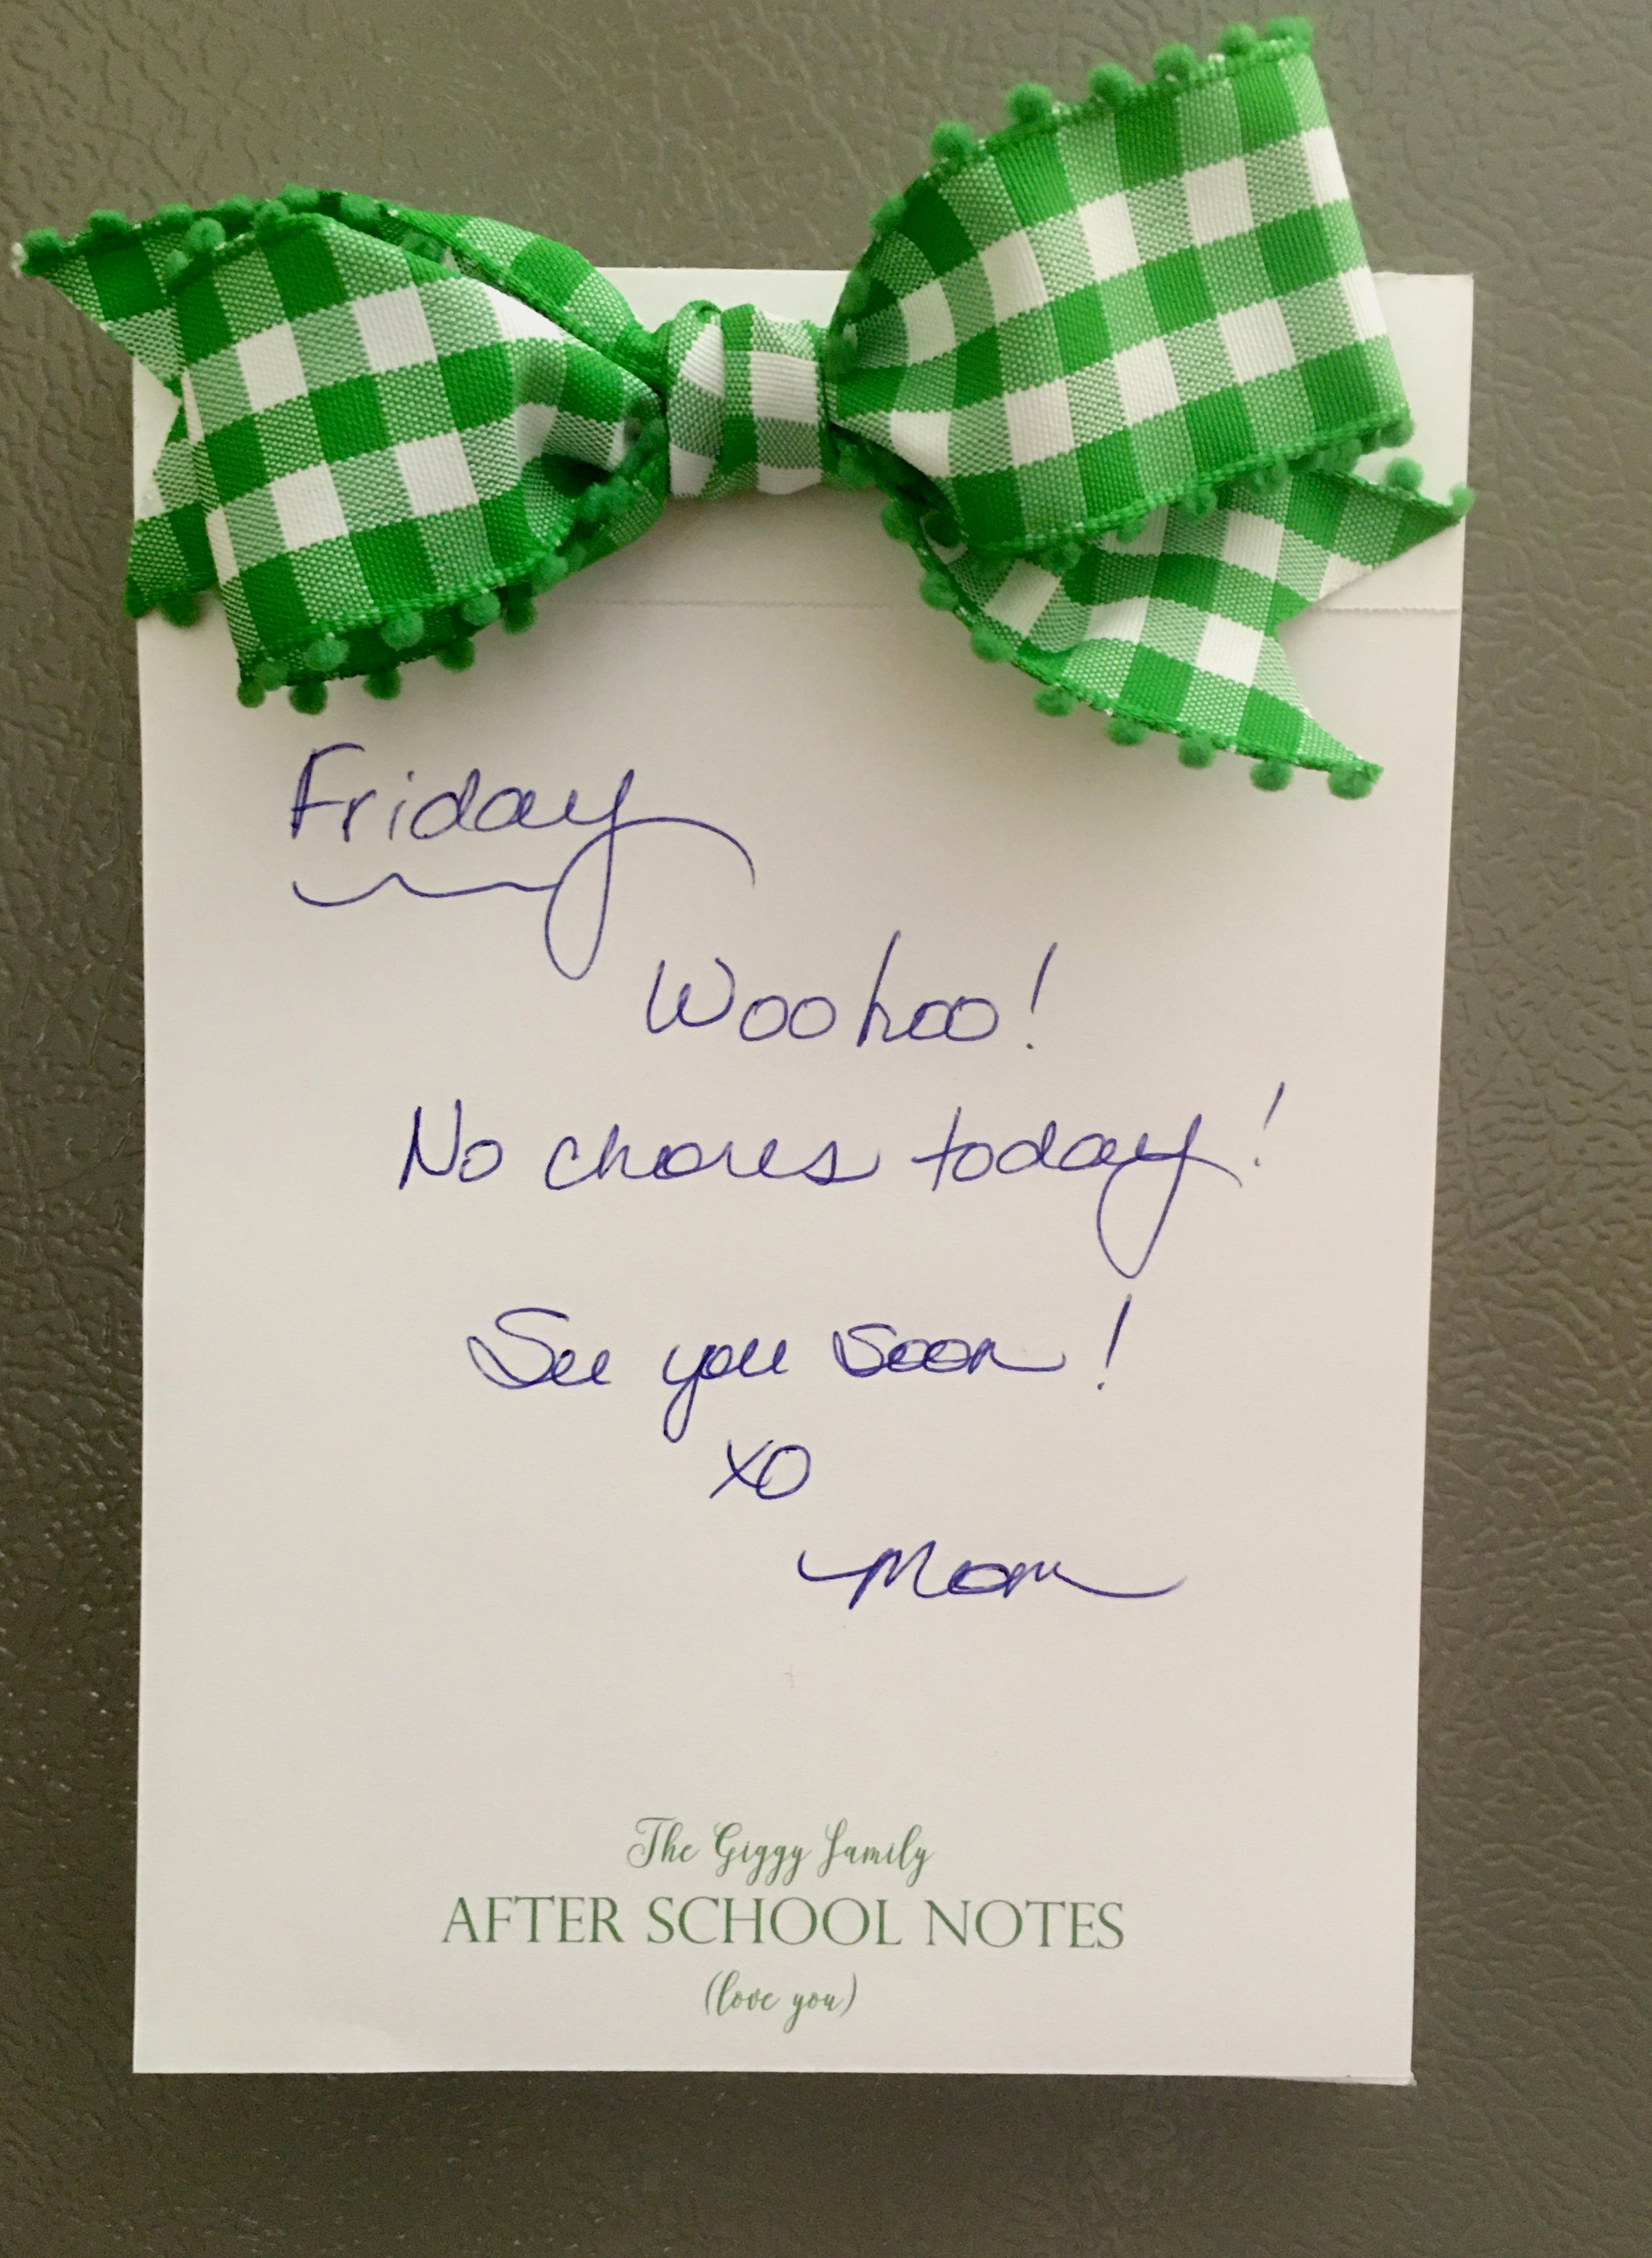 Friday
Woohoo!
No chores today!
See you soon!
XO
Mom
The Giggy Family
AFTER SCHOOL NOTES
(love you)